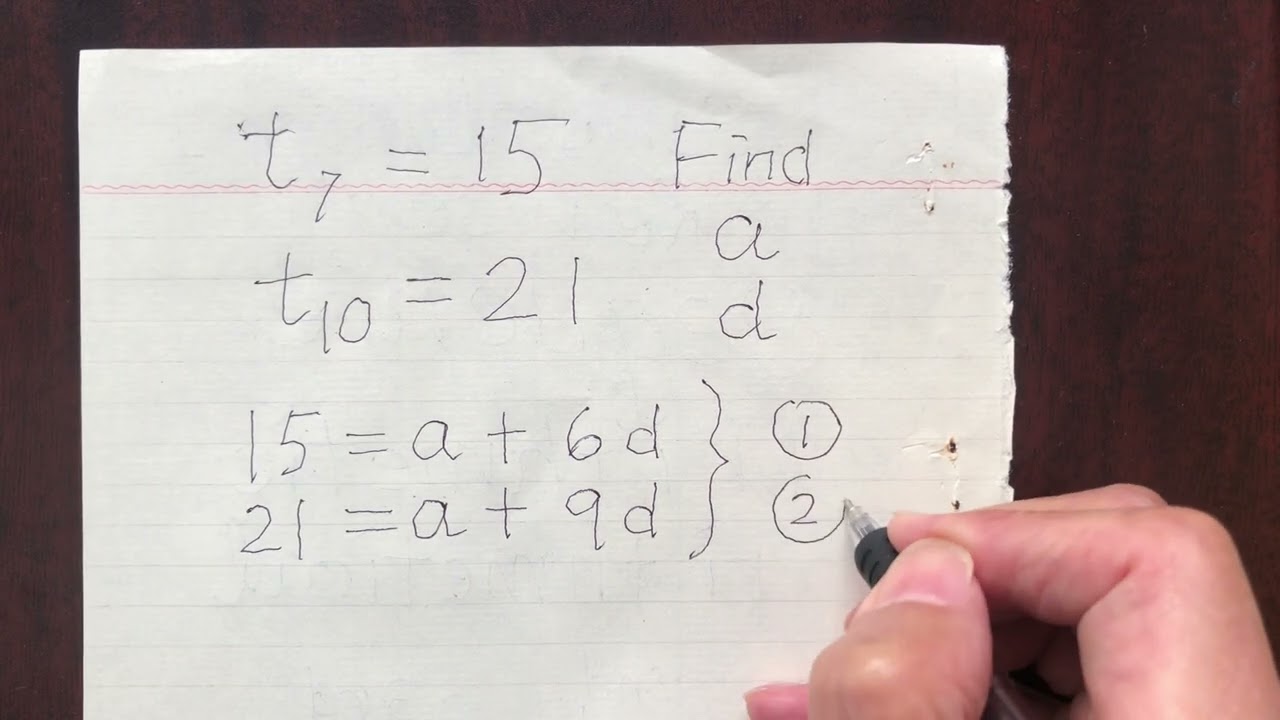 t₇ = 15 Find
a
t₁₀ = 21
d
15 = a + 6d } ①
21 = a + 9d ②